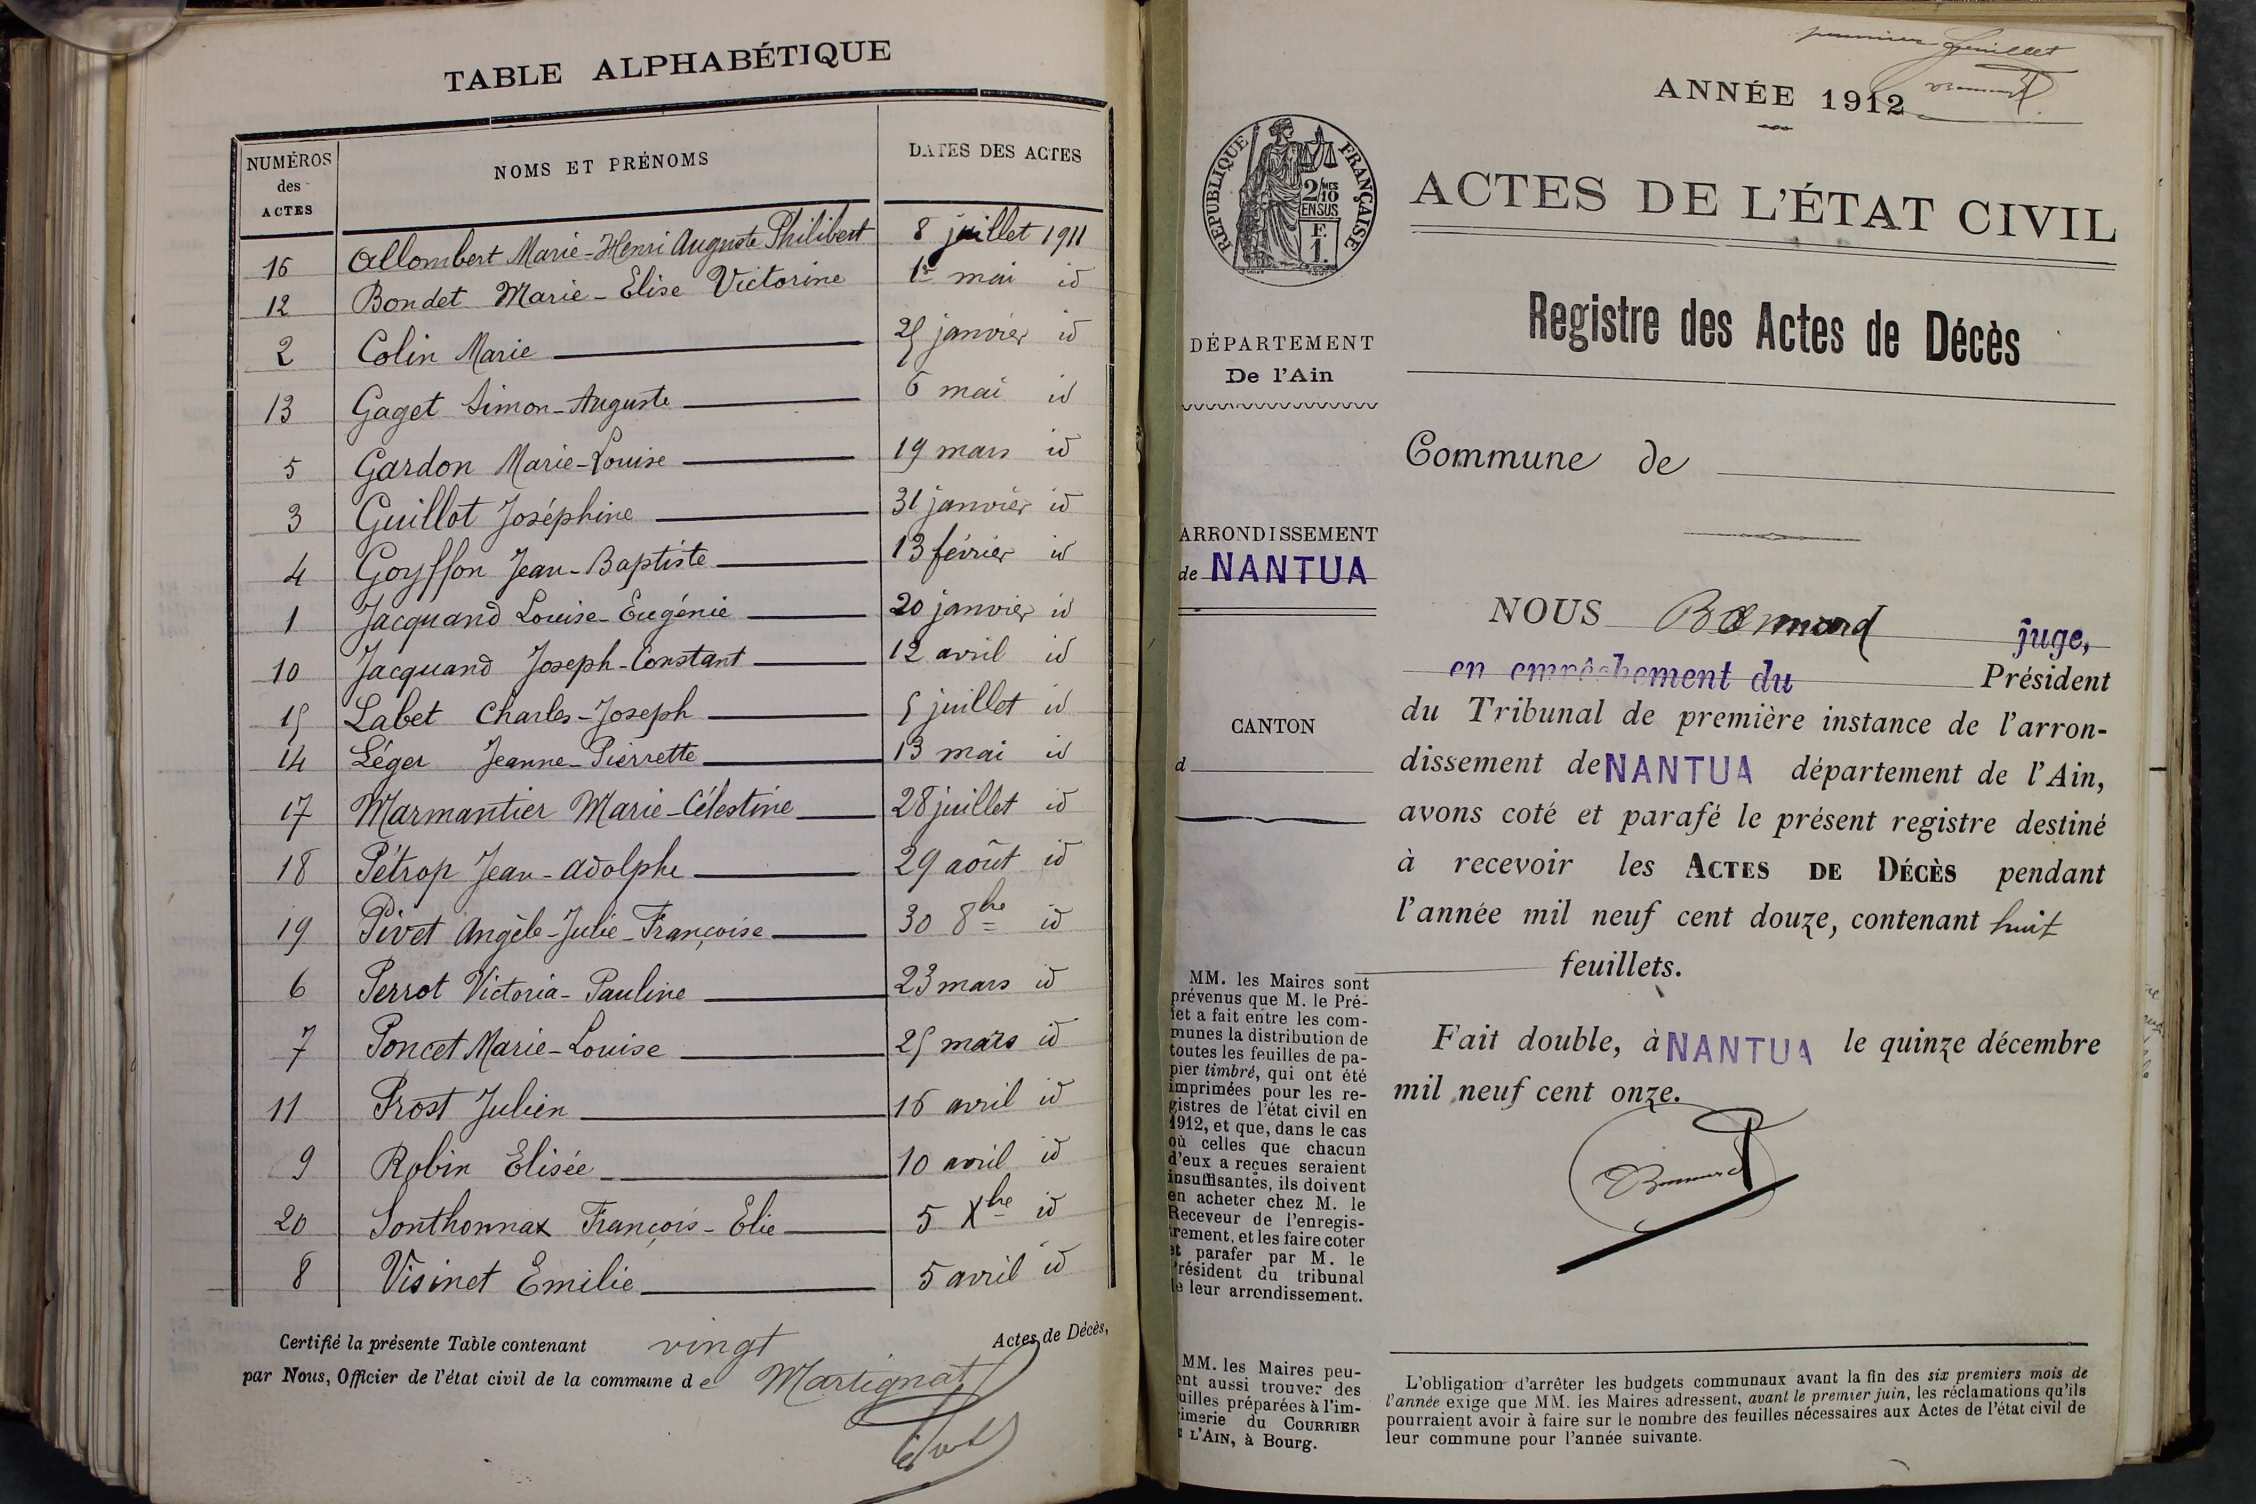 TABLE ALPHABÉTIQUE
NUMÉROS des ACTES NOMS ET PRÉNOMS DATES DES ACTES
16 Allombert Marie-Henri Auguste Philibert 8 juillet 1911
12 Bondet Marie-Elise Victorine 1er mai id
2 Colin Marie 25 janvier id
13 Gaget Simon-Auguste 6 mai id
5 Gardon Marie-Louise 19 mars id
3 Guillot Joséphine 31 janvier id
4 Goyffon Jean-Baptiste 13 février id
1 Jacquand Louise-Eugénie 20 janvier id
10 Jacquand Joseph-Constant 12 avril id
15 Labet Charles-Joseph 5 juillet id
14 Léger Jeanne-Pierrette 13 mai id
17 Marmantier Marie-Célestine 28 juillet id
18 Pétrop Jean-Adolphe 29 août id
19 Pivet Angèle-Julie-Françoise 30 8bre id
6 Perrot Victoria-Pauline 23 mars id
7 Poncet Marie-Louise 25 mars id
11 Prost Julien 16 avril id
9 Robin Elisée 10 avril id
20 Sonthonnax François-Elie 5 Xbre id
8 Visinet Emilie 5 avril id
Certifié la présente Table contenant vingt Actes de Décès,
par Nous, Officier de l'état civil de la commune de Martignat
premier feuillet
ANNÉE 1912
RÉPUBLIQUE FRANÇAISE
2/10MES
EN SUS
F.
1.
ACTES DE L'ÉTAT CIVIL
Registre des Actes de Décès
DÉPARTEMENT
De l'Ain
Commune de
ARRONDISSEMENT
de NANTUA
CANTON
d
NOUS juge,
en empêchement du Président
du Tribunal de première instance de l'arron-
dissement de NANTUA département de l'Ain,
avons coté et parafé le présent registre destiné
à recevoir les ACTES DE DÉCÈS pendant
l'année mil neuf cent douze, contenant huit
feuillets.
Fait double, à NANTUA le quinze décembre
mil neuf cent onze.
MM. les Maires sont
prévenus que M. le Pré-
fet a fait entre les com-
munes la distribution de
toutes les feuilles de pa-
pier timbré, qui ont été
imprimées pour les re-
gistres de l'état civil en
1912, et que, dans le cas
où celles que chacun
d'eux a reçues seraient
insuffisantes, ils doivent
en acheter chez M. le
Receveur de l'enregis-
trement, et les faire coter
et parafer par M. le
Président du tribunal
de leur arrondissement.
MM. les Maires peu-
vent aussi trouver des
feuilles préparées à l'im-
primerie du COURRIER
DE L'AIN, à Bourg.
L'obligation d'arrêter les budgets communaux avant la fin des six premiers mois de
l'année exige que MM. les Maires adressent, avant le premier juin, les réclamations qu'ils
pourraient avoir à faire sur le nombre des feuilles nécessaires aux Actes de l'état civil de
leur commune pour l'année suivante.